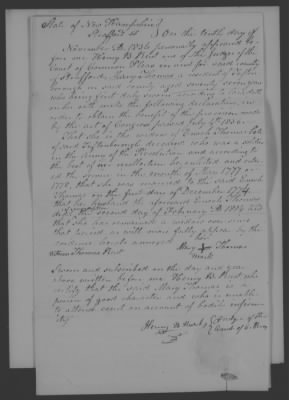 State of New Hampshire
Strafford ss } On the tenth day of
November A.D. 1836 personally appeared be
fore me Henry B. Rust one of the judges of the
Court of Common Pleas in and for said county
of Strafford, Mary Thomas a resident of Wolfe-
borough in said county aged seventy seven years
who being first duly sworn according to law doth
on her oath make the following declaration, in
order to obtain the benefit of the provision made
by the act of Congress passed July 4th 1836.
That she is the widow of Enoch Thomas late
of said Tuftonborough deceased who was a soldier
in the Army of the Revolution and according to
the best of my recollection he enlisted and enter
ed the service in the month of May 1777 or
1778, that she was married to the said Enoch
Thomas on the first day of December 1774
that her husband the aforesaid Enoch Thomas
died the second day of February A.D. 1818 and
that she has remained a widow ever since
that period as will more fully appear by the
evidence hereto annexed
her
Mary + Thomas
mark
Witness Thomas Rust
Sworn and subscribed on the day and year
above written before me Henry B. Rust who
certify that the said Mary Thomas is a
person of good character and who is unable
to attend court on account of bodily infirm
ity
Henry B Rust } Judge of the
Court of C. Pleas